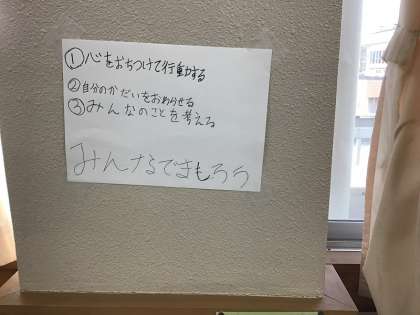 ①心をおちつけて行動する
②自分のかだいをおわらせる
③みんなのことを考える
みんなでまもろう